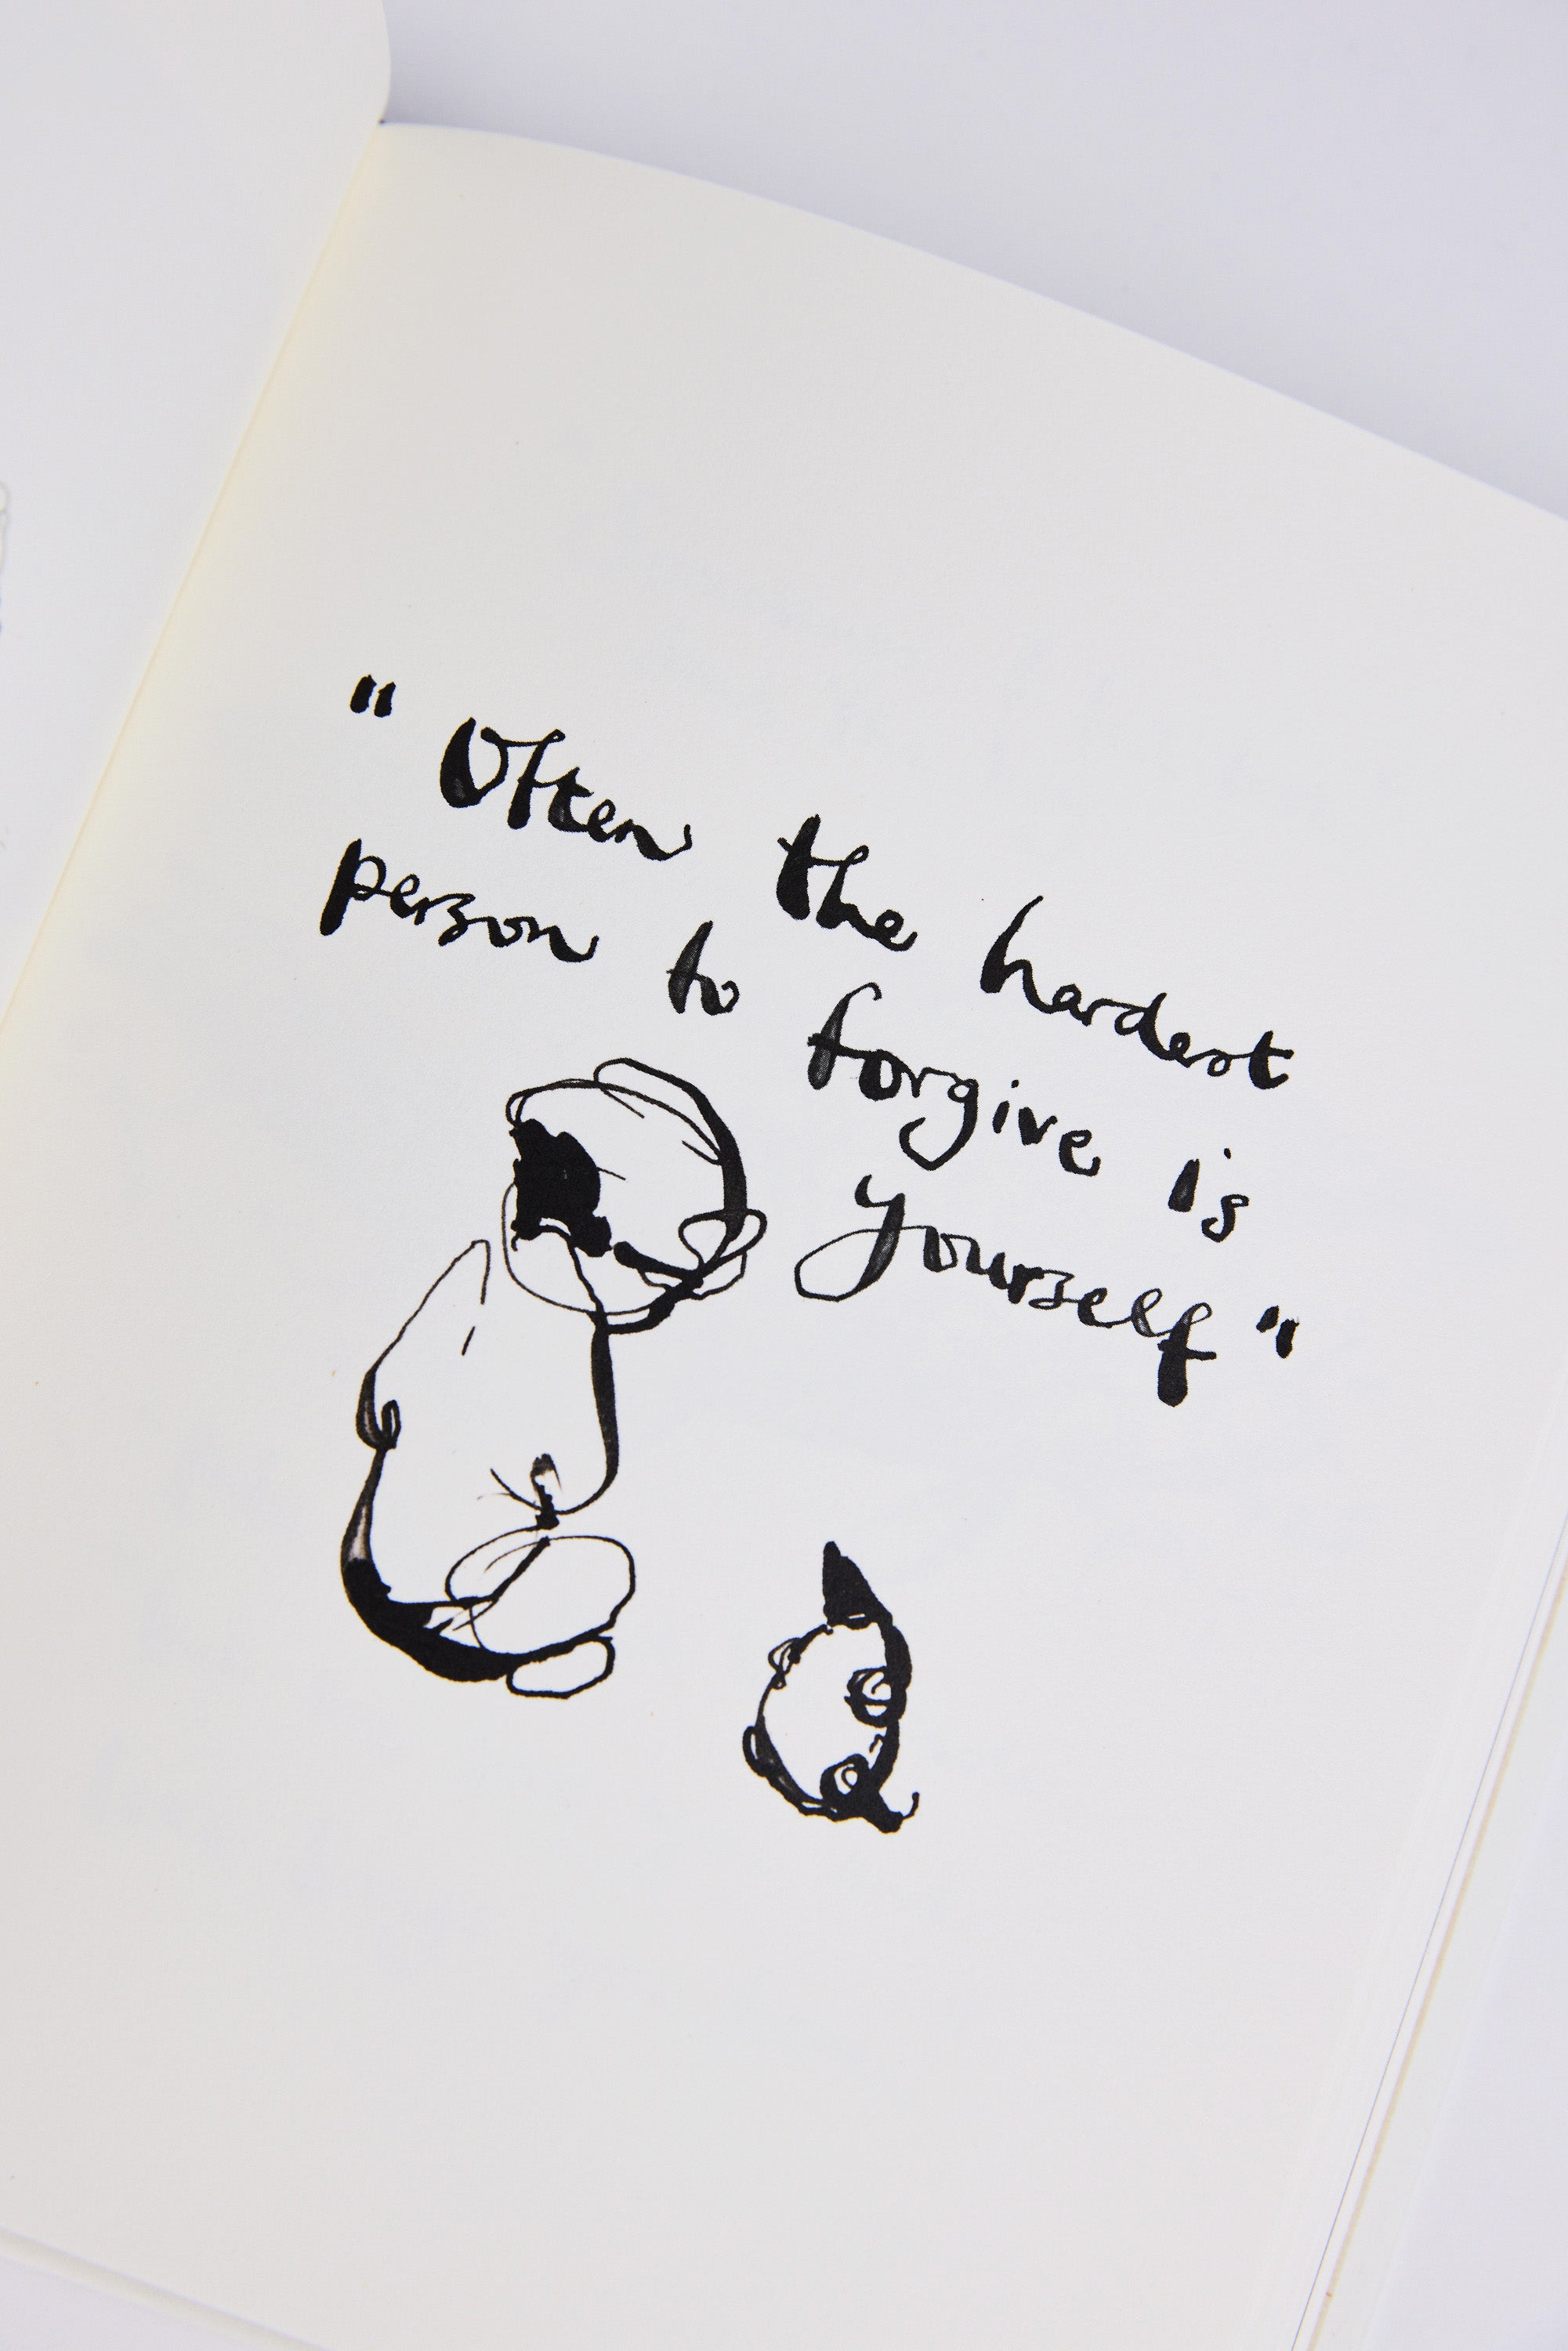 "Often the hardest
person to forgive is
yourself"